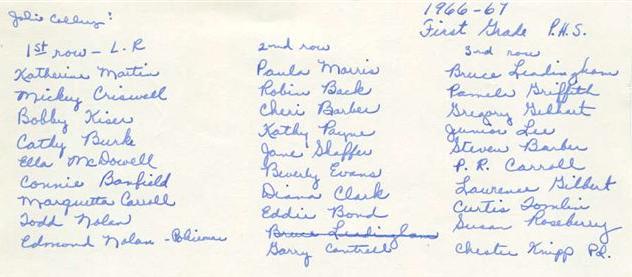 Jolie Colliny:
1966-67
First Grade P.H.S.
1st row - L.R
Katherine Martin
Mickey Criswell
Bobby Kiser
Cathy Burke
Ella McDowell
Connie Banfield
Marquetta Carroll
Todd Nolan
Edmond Nolan - Policeman
2nd row
Paula Morris
Robin Back
Cheri Barber
Kathy Payne
Jane Shaffer
Beverly Evans
Diana Clark
Eddie Bond
Bruce Leadingham
Garry Cantrell
3rd row
Bruce Leadingham
Pamela Griffith
Gregory Gilkert
Junior Lee
Steven Barber
P.R. Carroll
Lawrence Gilbert
Curtis Tomlin
Susan Roseberry
Chester Knipp Pd.